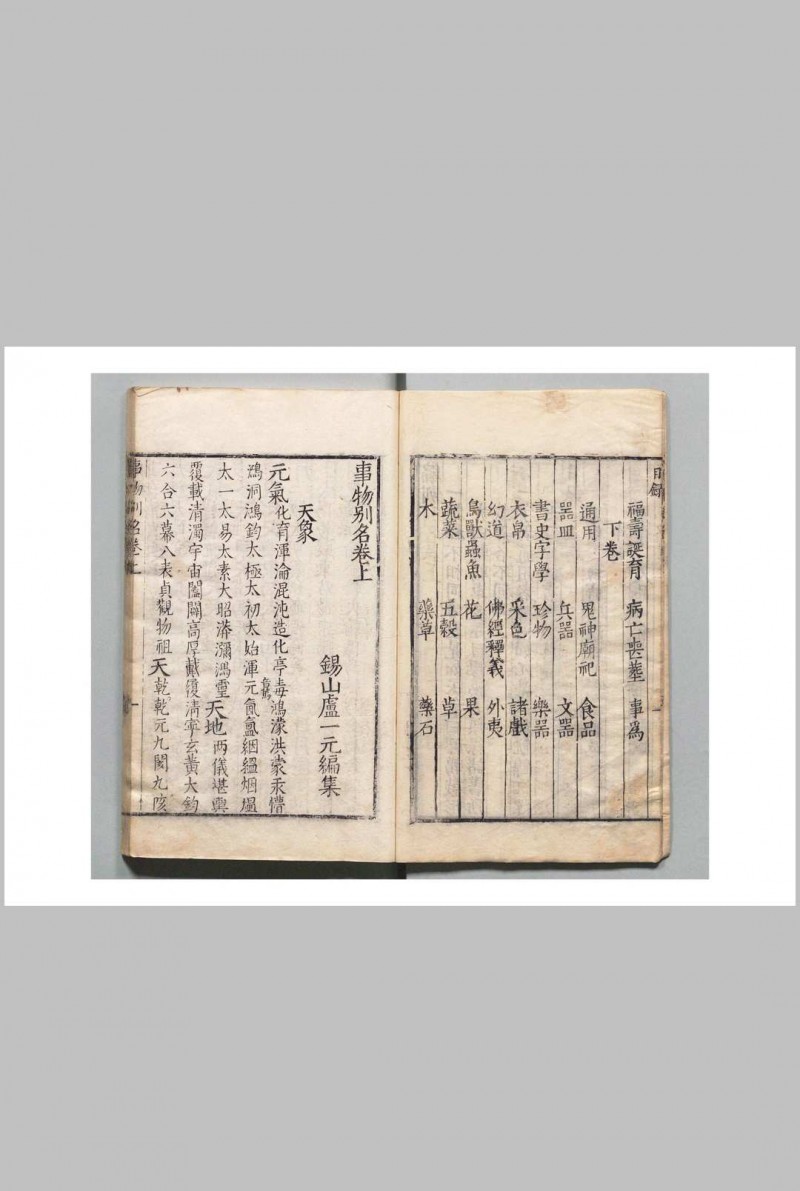 目錄
福壽誕育 病亡喪塟 事為
下卷
通用 鬼神廟祀 食品
器皿 兵器 文器
書史字學 珍物 樂器
衣帛 采色 諸戲
幻道 佛經釋義 外夷
鳥獸蟲魚 花 果
蔬菜 五穀 草
木 藥草 藥石
事物别名卷上
錫山盧一元編集
天象
元氣化育渾淪混沌造化亭毒鴻濛洪蒙汞懵
鴻洞鴻鈞太極太初太始渾元氤氳絪縕烟熅
太一太易太素大昭漭瀰鴻靈天地两儀堪輿
覆載清濁宇宙闔闢高厚戴履清寧玄黃大鈞
六合六幕八表貞觀物祖天乾乾元九閡九陔
事物别名卷上 一